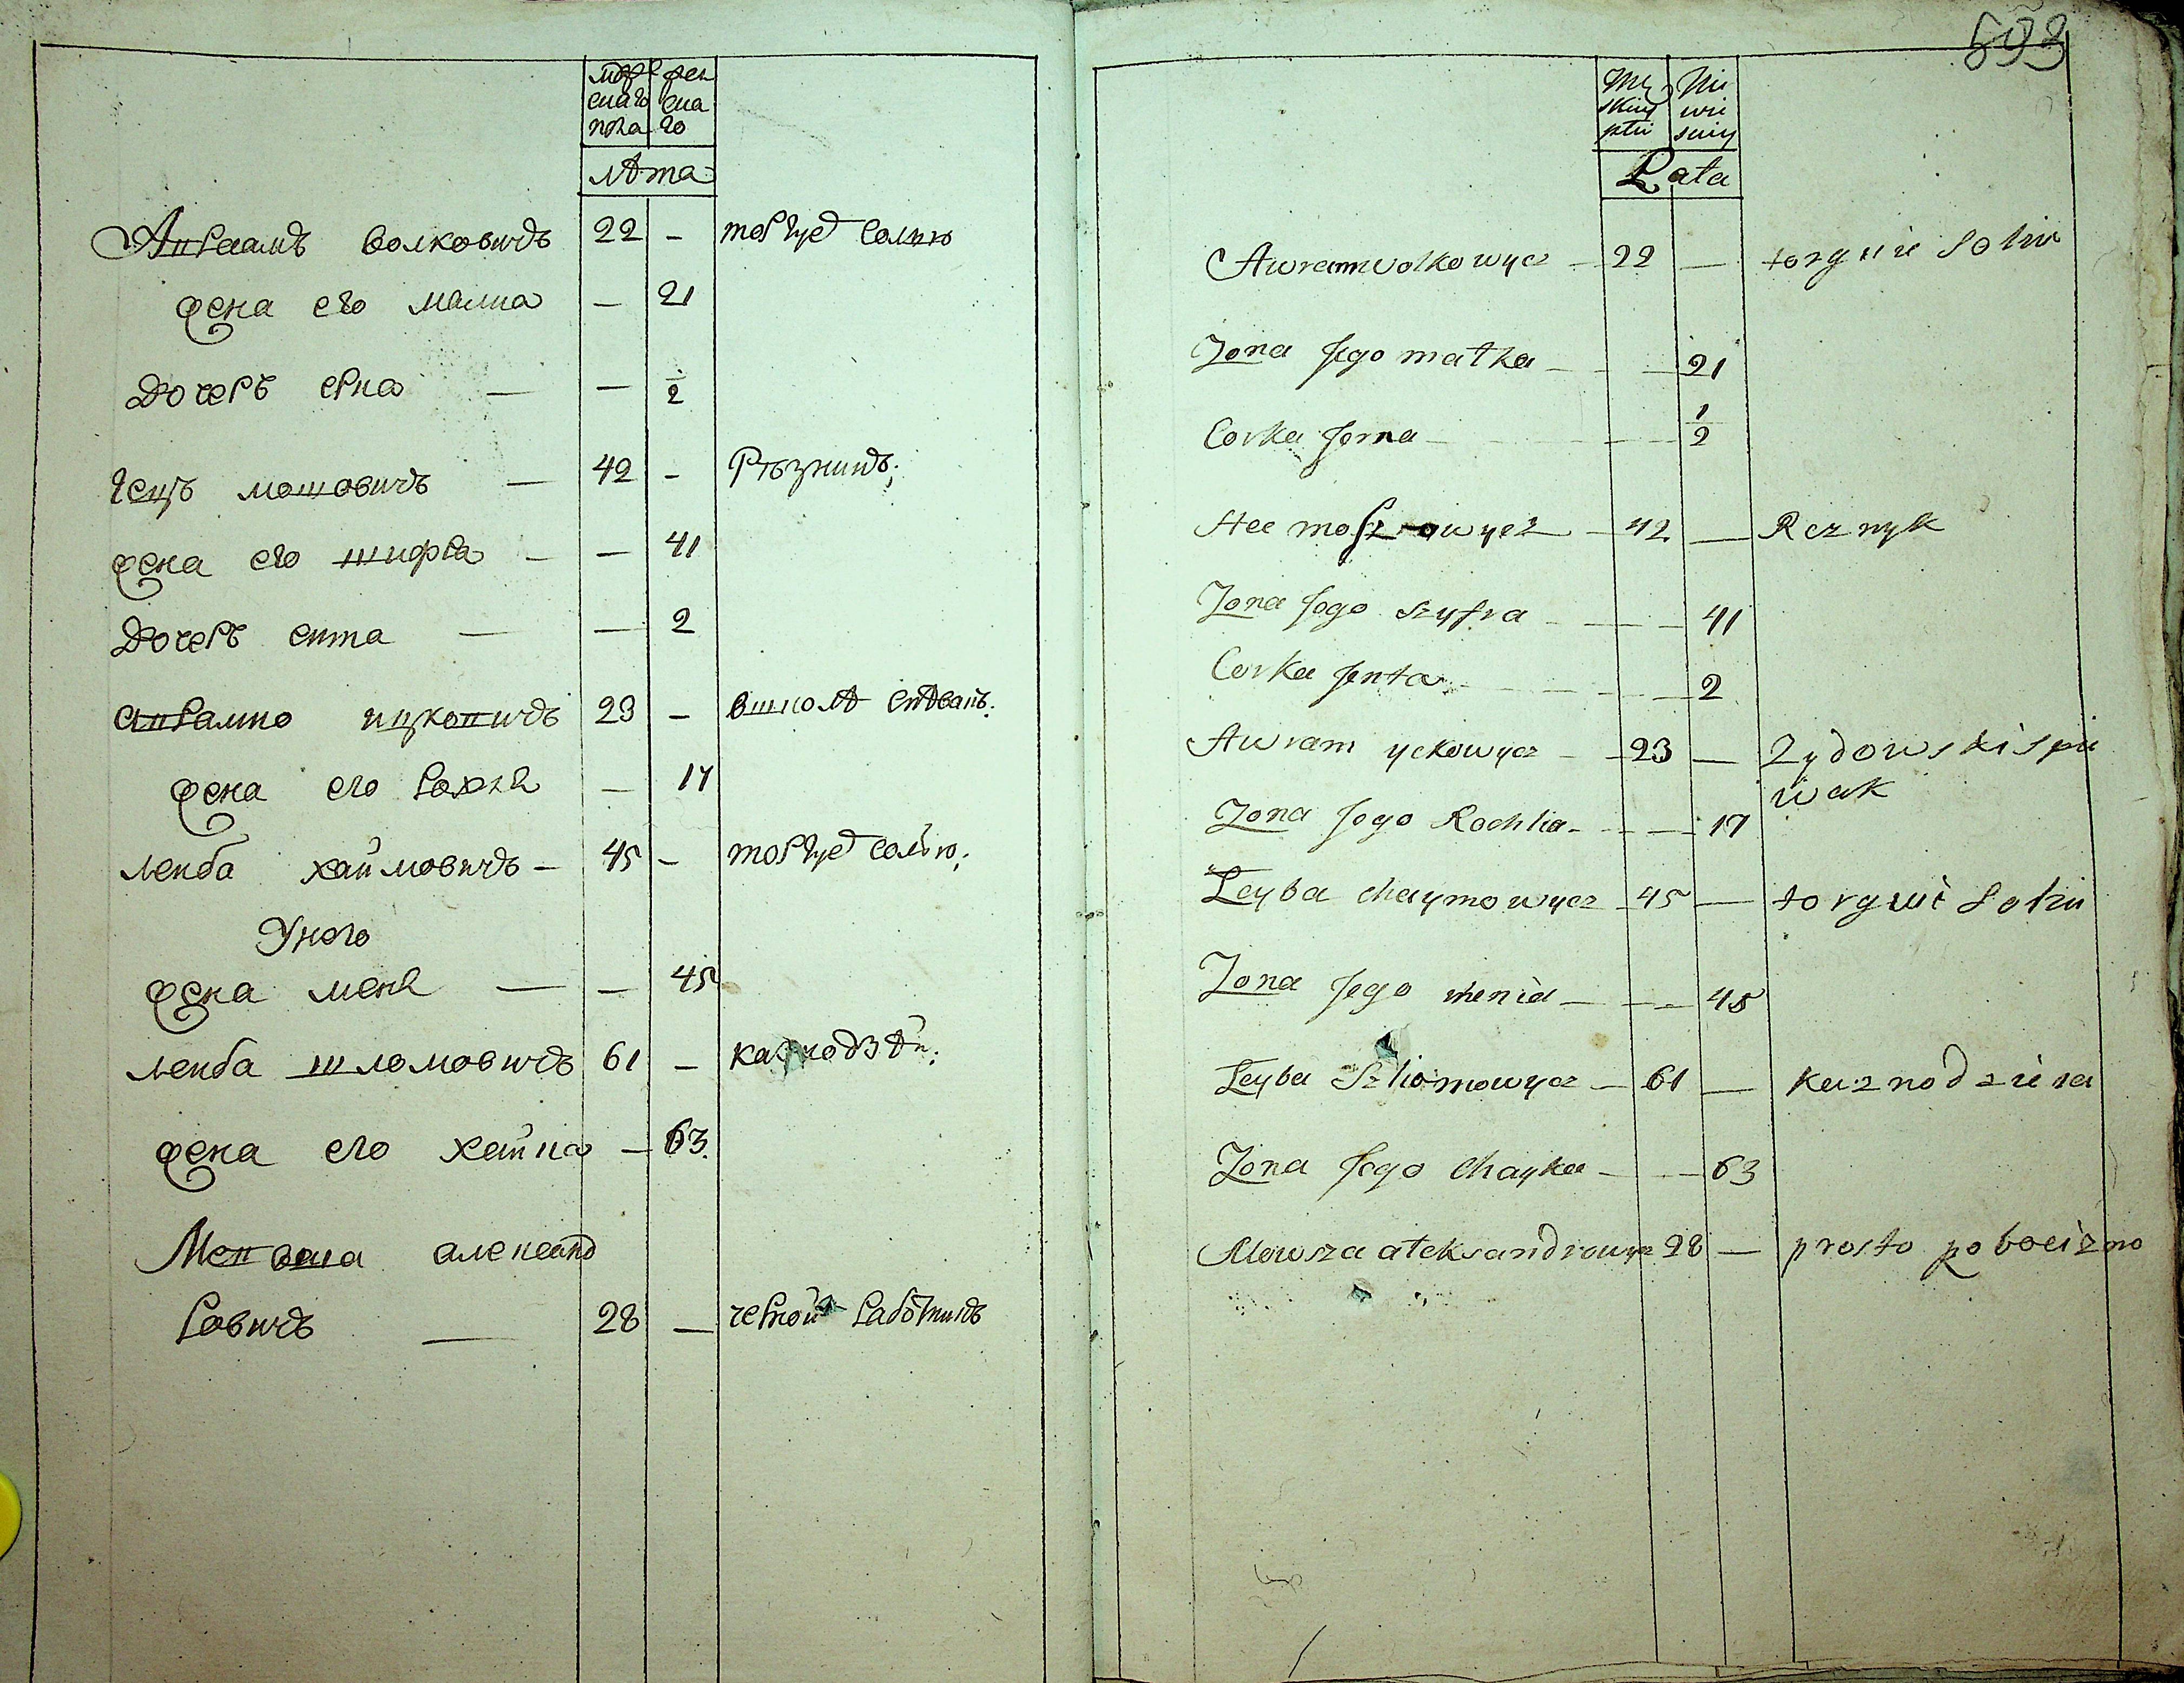 мужескаго пола женскаго
лѣта
Авраамъ волковичъ 22 – торгуетъ солью
жена его малка — 21
Дочерь ерка — — 1/2
Гецъ мошковичъ — 42 – Рѣзникъ;
жена его шифра — — 41
Дочерь ента — — 2
Аврамко ицковичъ 23 – вшколѣ спѣвакъ.
жена его Рохля — 17
леиба хаймовичъ – 45 – торгуетъ солью;
Унего
жена меня — — 45
леиба шломовичъ 61 – казнодзѣи;
жена его хайка — 63.
Мевша александ
ровичъ — 28 — черной работникъ
593
Mę skiey płci Nie wie sciey
Lata
Awram wolkowycz — 22 — torguie Solии
Zona jego matka — — 21
Corka jerna — — 1/2
Hec moszkowycz — 42 — Rcznyk
Zona jego szyfra — — 41
Corka jenta — — 2
Awram yckowycz — 23 — Zydowski spie
wak
Zona jego Rochlia — — 17
Leyba chaymowycz 45 — torguie Soliu
Zona jego menia — — 45
Leyba Szliomowycz — 61 — kaznodzieia
Zona jego Chayka — — 63
Mowsza aleksandrowycz 28 — prosto robocizno